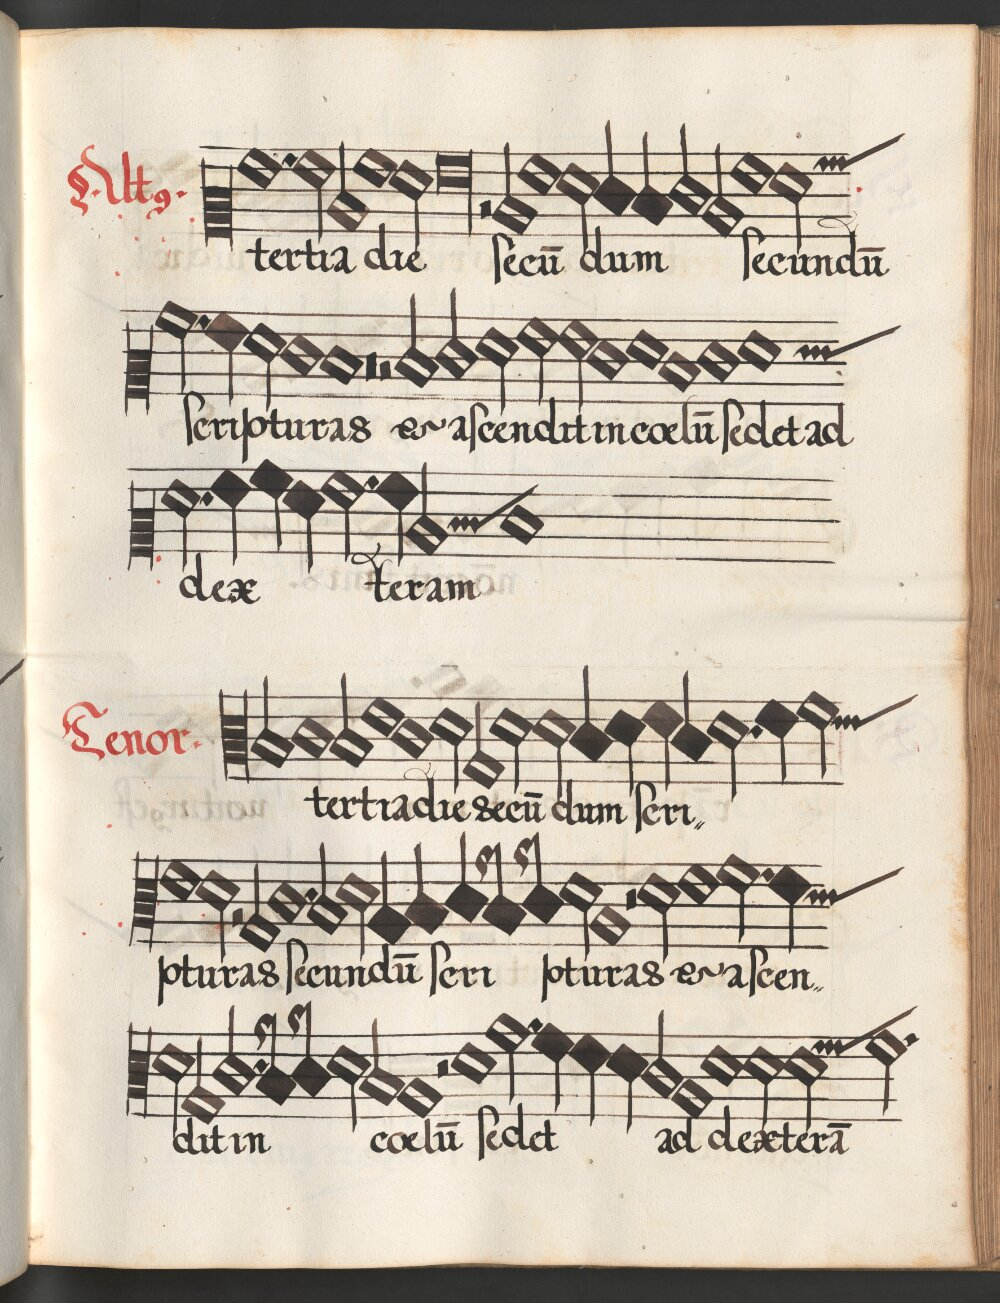 Alt9.
tertia die secū dum secundū
scripturas & ascendit in coelū sedet ad
dex teram
Tenor.
tertia die secū dum scri„
pturas secundū scri pturas & ascen„
dit in coelū sedet ad dexterā